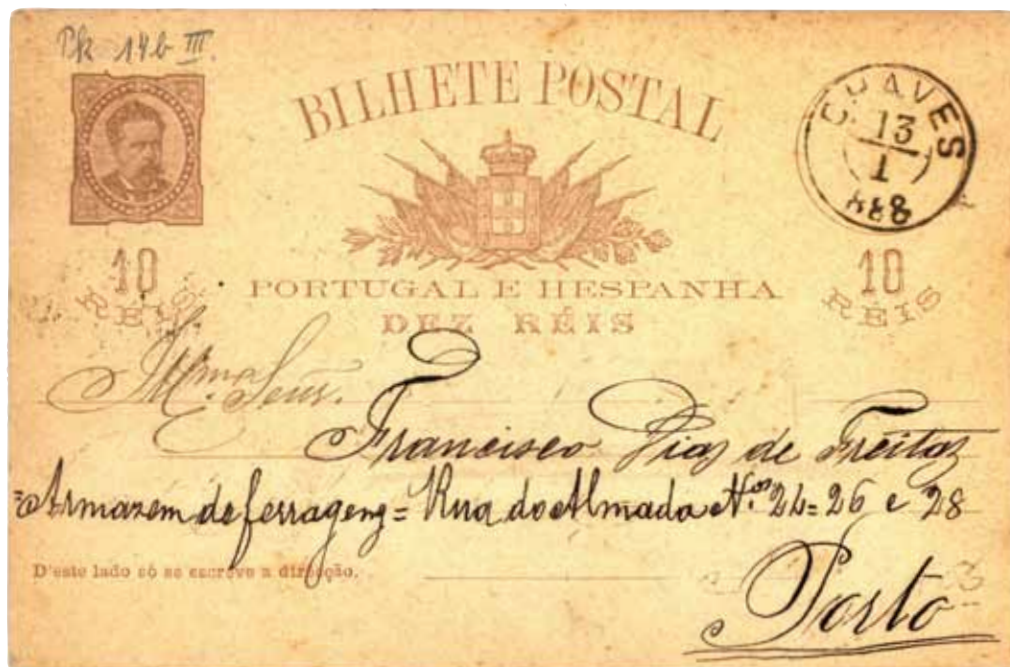 Pk 14b III.
BILHETE POSTAL
CHAVES
13
1
888
10
REIS
10
RÉIS
PORTUGAL E HESPANHA
DEZ RÉIS
Illmo. Senr.
Francisco Dias de Freitas
=Armazem de ferragens= Rua do Almada Nos. 24=26 e 28
D'este lado só se escreve a direcção.
Porto